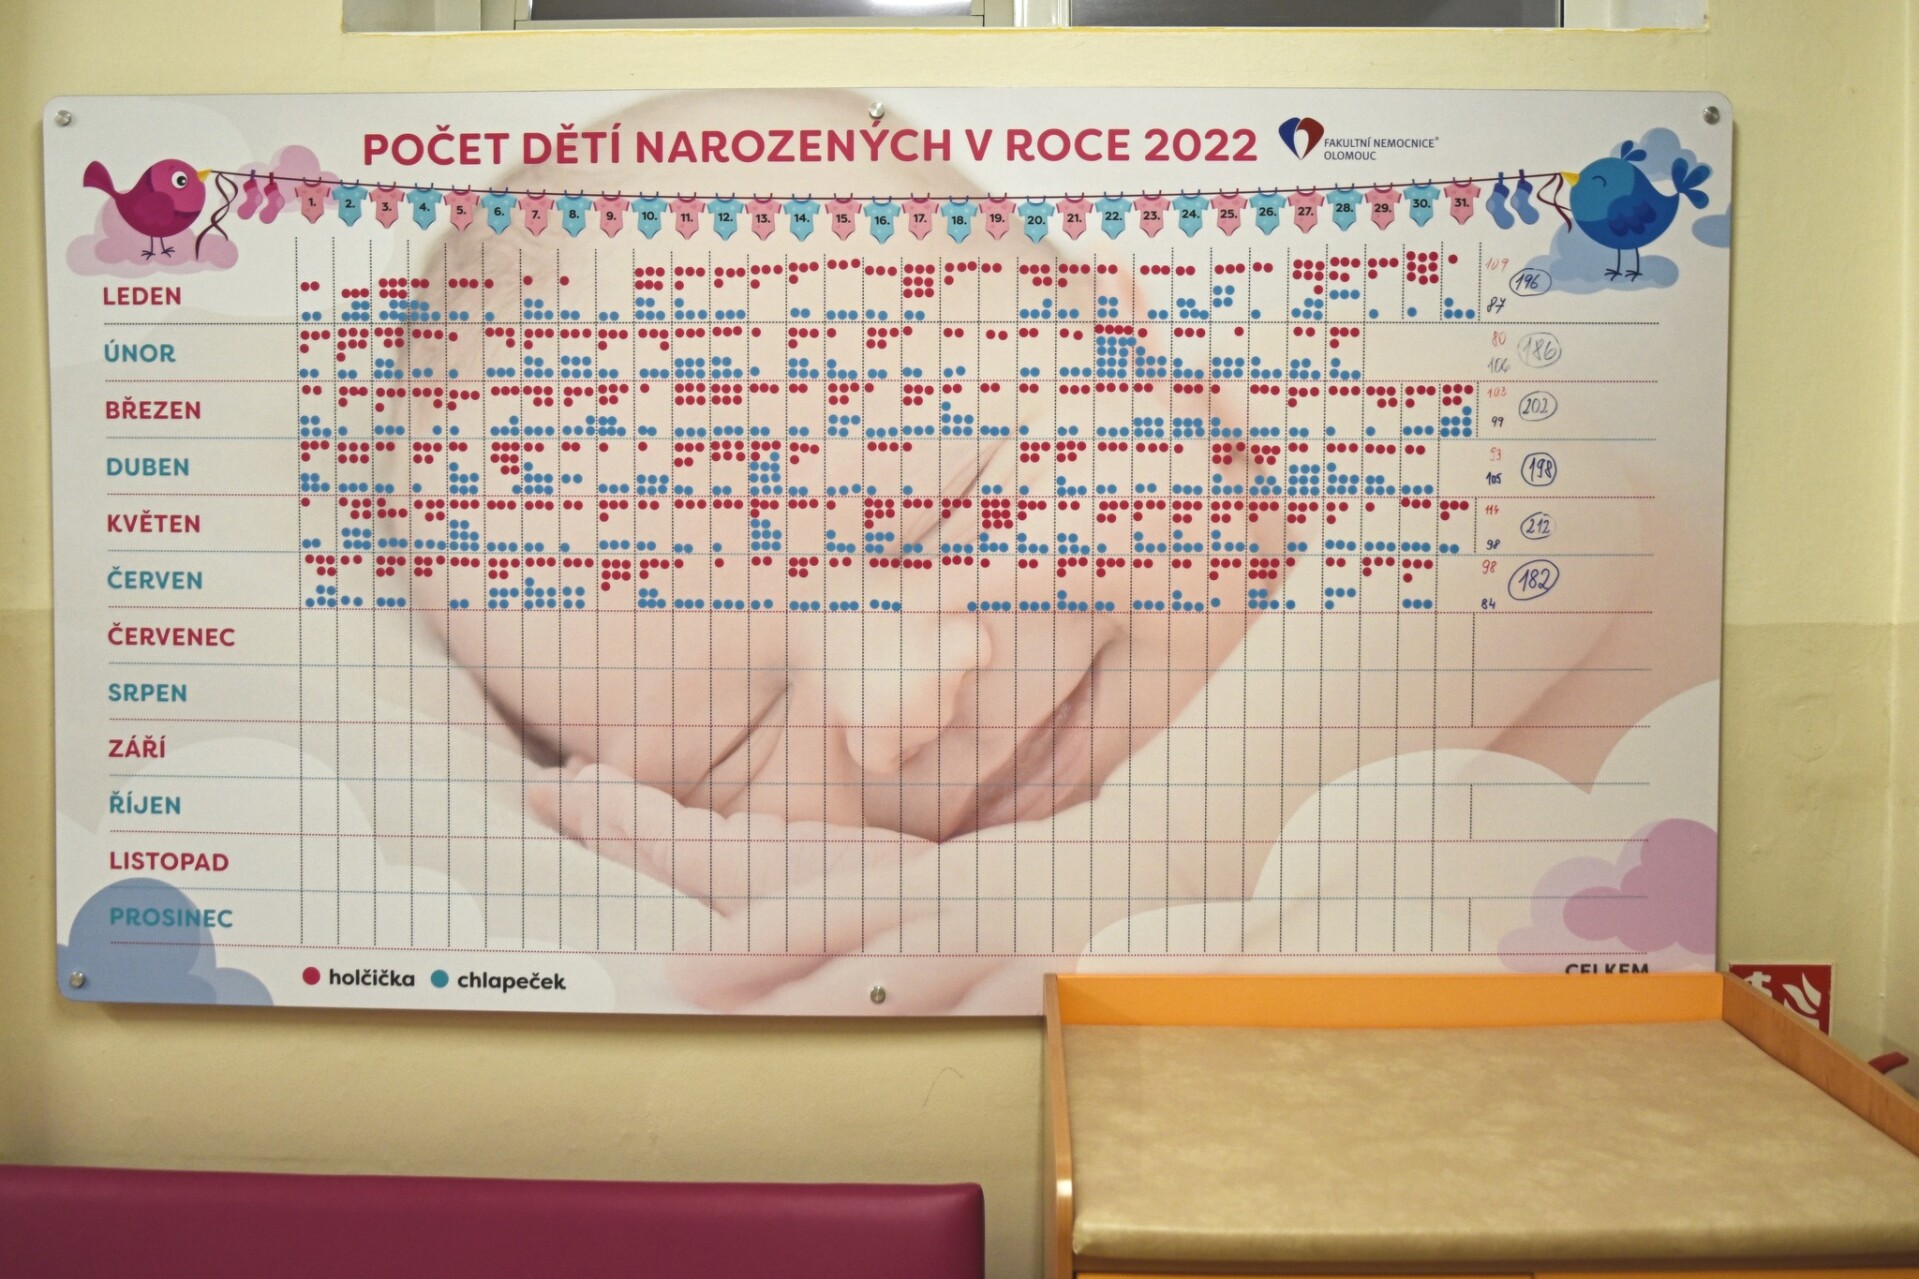 POČET DĚTÍ NAROZENÝCH V ROCE 2022
FAKULTNÍ NEMOCNICE®
OLOMOUC
1. 2. 3. 4. 5. 6. 7. 8. 9. 10. 11. 12. 13. 14. 15. 16. 17. 18. 19. 20. 21. 22. 23. 24. 25. 26. 27. 28. 29. 30. 31.
LEDEN 109 87 196
ÚNOR 80 106 186
BŘEZEN 103 99 202
DUBEN 93 105 198
KVĚTEN 114 98 212
ČERVEN 98 84 182
ČERVENEC
SRPEN
ZÁŘÍ
ŘÍJEN
LISTOPAD
PROSINEC
holčička chlapeček
CELKEM